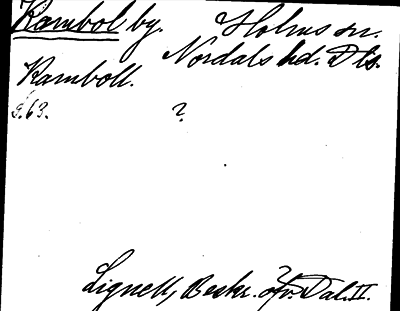 Rambol by. Holms sn.
Nordals hd. Dls.
Ramboll.
s. 63. ?
Lignell, Beskr. öfv. Dal. II.